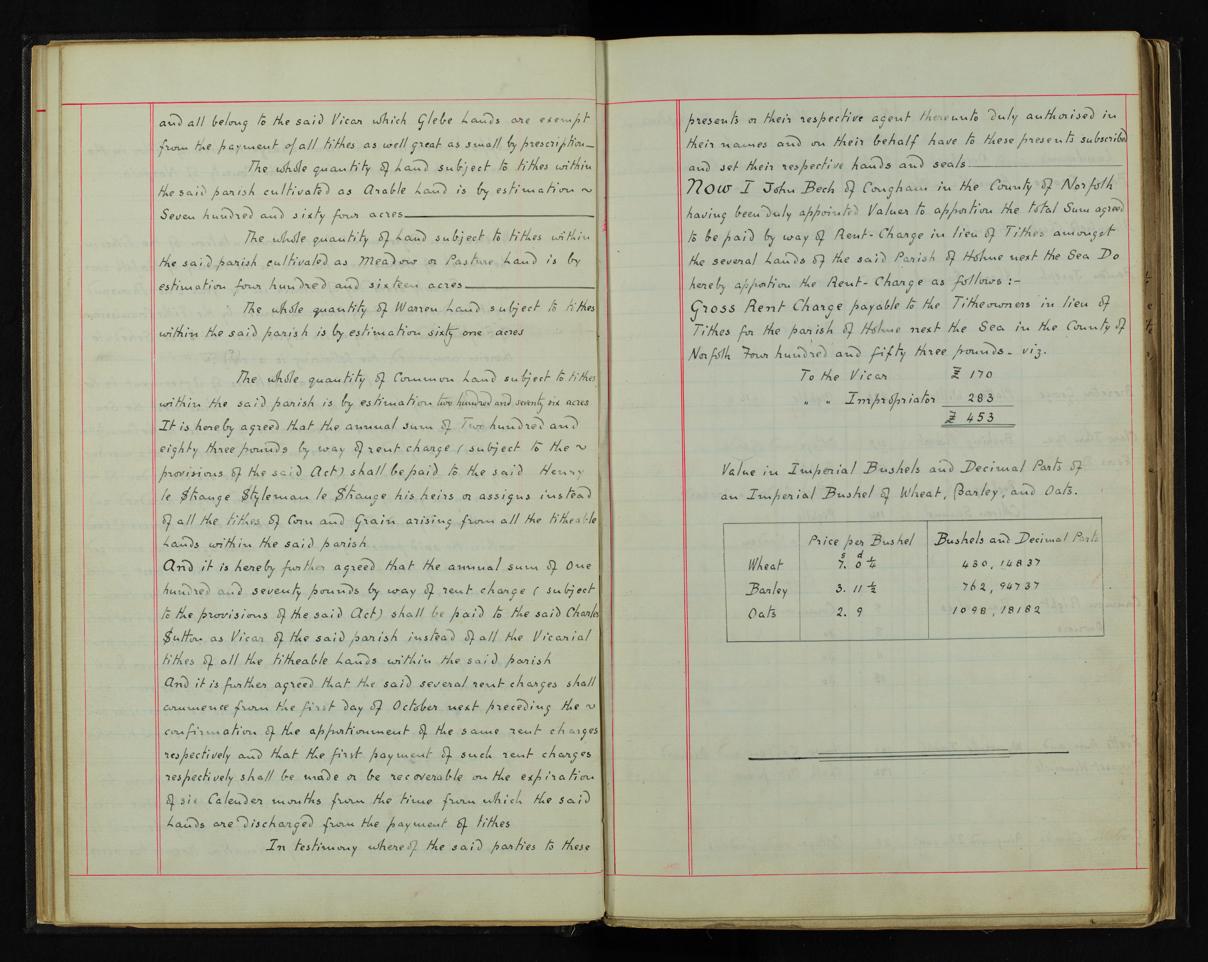 and all belong to the said Vicar which Glebe Lands are exempt
from the payment of all tithes as well great as small by prescription
The whole quantity of Land subject to tithes within
the said parish cultivated as Arable Land is by estimation ~
Seven hundred and sixty four acres
The whole quantity of Land subject to tithes within
the said parish cultivated as Meadow or Pasture Land is by
estimation four hundred and sixteen acres
The whole quantity of Warren Land subject to tithes
within the said parish is by estimation sixty one acres
The whole quantity of Common Land subject to tithes
within the said parish is by estimation two hundred and seventy six acres
It is hereby agreed that the annual sum of Two hundred and
eighty three pounds by way of rent charge (subject to the ~
provisions of the said Act) shall be paid to the said Henry
le Strange Styleman le Strange his heirs or assigns instead
of all the tithes of Corn and Grain arising from all the titheable
Lands within the said parish
And it is hereby further agreed that the annual sum of One
hundred and seventy pounds by way of rent charge (subject
to the provisions of the said Act) shall be paid to the said Charles
Sutton as Vicar of the said parish instead of all the Vicarial
tithes of all the titheable Lands within the said parish
And it is further agreed that the said several rent charges shall
commence from the first day of October next preceding the ~
confirmation of the apportionment of the same rent charges
respectively and that the first payment of such rent charges
respectively shall be made or be recoverable on the expiration
of six Calender months from the time from which the said
Lands are discharged from the payment of tithes
In testimony whereof the said parties to these
presents or their respective agent thereunto duly authorised in
their names and on their behalf have to these presents subscribed
and set their respective hands and seals
Now I John Beck of Congham in the County of Norfolk
having been duly appointed Valuer to apportion the total Sum agreed
to be paid by way of Rent-Charge in lieu of Tithes amongst
the several Lands of the said Parish of Holme next the Sea Do
hereby apportion the Rent-Charge as follows:-
Gross Rent Charge payable to the Titheowners in lieu of
Tithes for the parish of Holme next the Sea in the County of
Norfolk Four hundred and fifty three pounds - viz.
To the Vicar £ 170
" " Impropriator 283
£ 453
Value in Imperial Bushels and Decimal Parts of
an Imperial Bushel of Wheat, Barley, and Oats.
Price per Bushel Bushels and Decimal Parts
s d
Wheat 7. 0 1/4 430,14837
Barley 3. 11 1/2 762,94737
Oats 2. 9 1098,18182